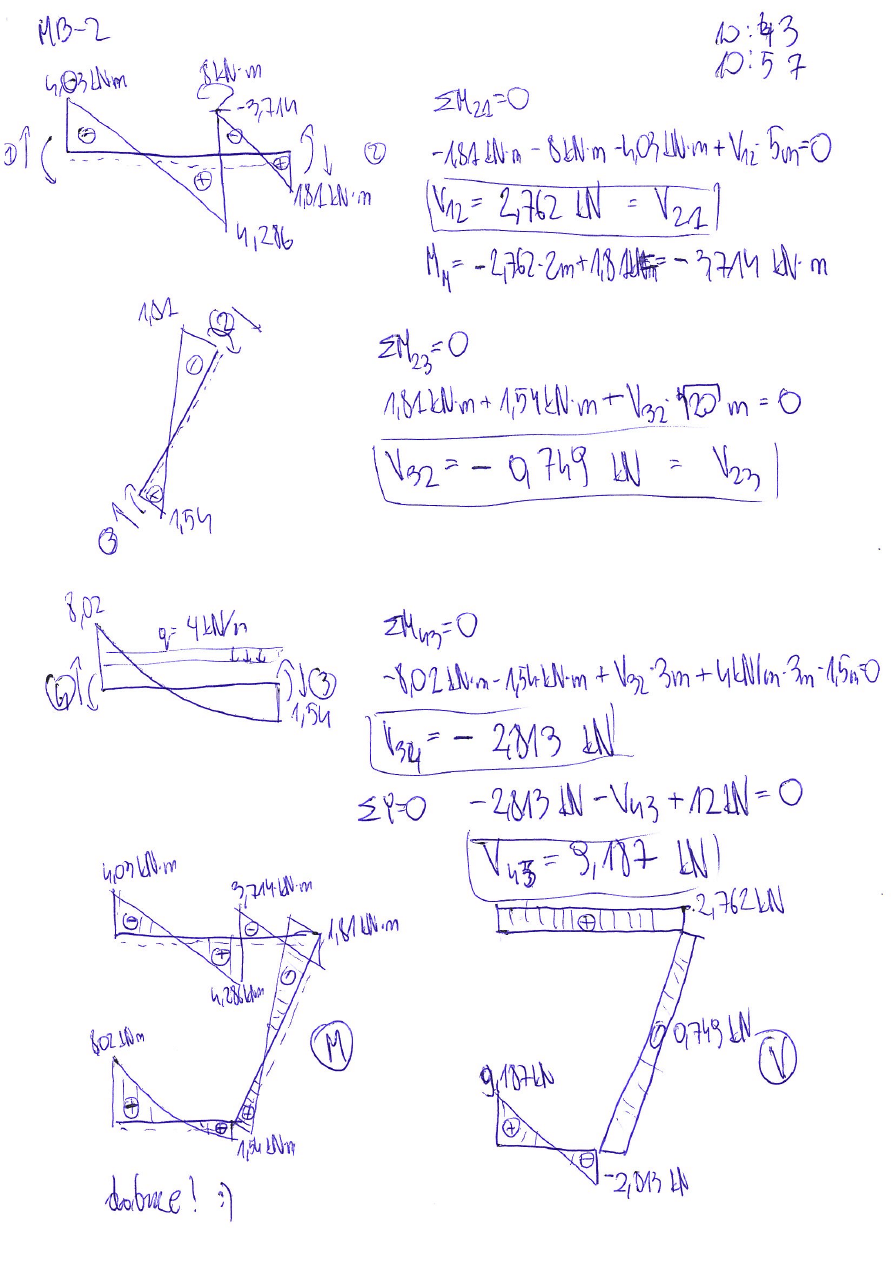 MB-2
10:43
10:57
4,03 kN·m
8 kN·m
-3,714
⊖
⊖
1
⊕
⊕
2
1,81 kN·m
4,286
ΣM₂₁=0
-1,81 kN·m - 8 kN·m - 4,03 kN·m + V₁₂ · 5m = 0
V₁₂ = 2,762 kN = V₂₁
M_M = -2,762·2m + 1,81 = -3,714 kN·m
1,81
2
3
1,54
ΣM₂₃=0
1,81 kN·m + 1,54 kN·m + V₃₂ · √20 m = 0
V₃₂ = - 0,749 kN = V₂₃
8,02
q= 4 kN/m
3
1,54
ΣM₄₃=0
-8,02 kN·m - 1,54 kN·m + V₃₂ · 3m + 4 kN/m · 3m · 1,5m = 0
V₃₄ = - 2,813 kN
ΣY=0 -2,813 kN - V₄₃ + 12 kN = 0
V₄₃ = 9,187 kN
4,03 kN·m
3,714 kN·m
⊖
⊖
1,81 kN·m
⊕
4,286 kNm
8,02 kNm
M
⊕
⊕
⊕
1,54 kNm
2,762 kN
⊕
0,749 kN
V
9,187 kN
⊕
⊖
-2,813 kN
dobrze! :)